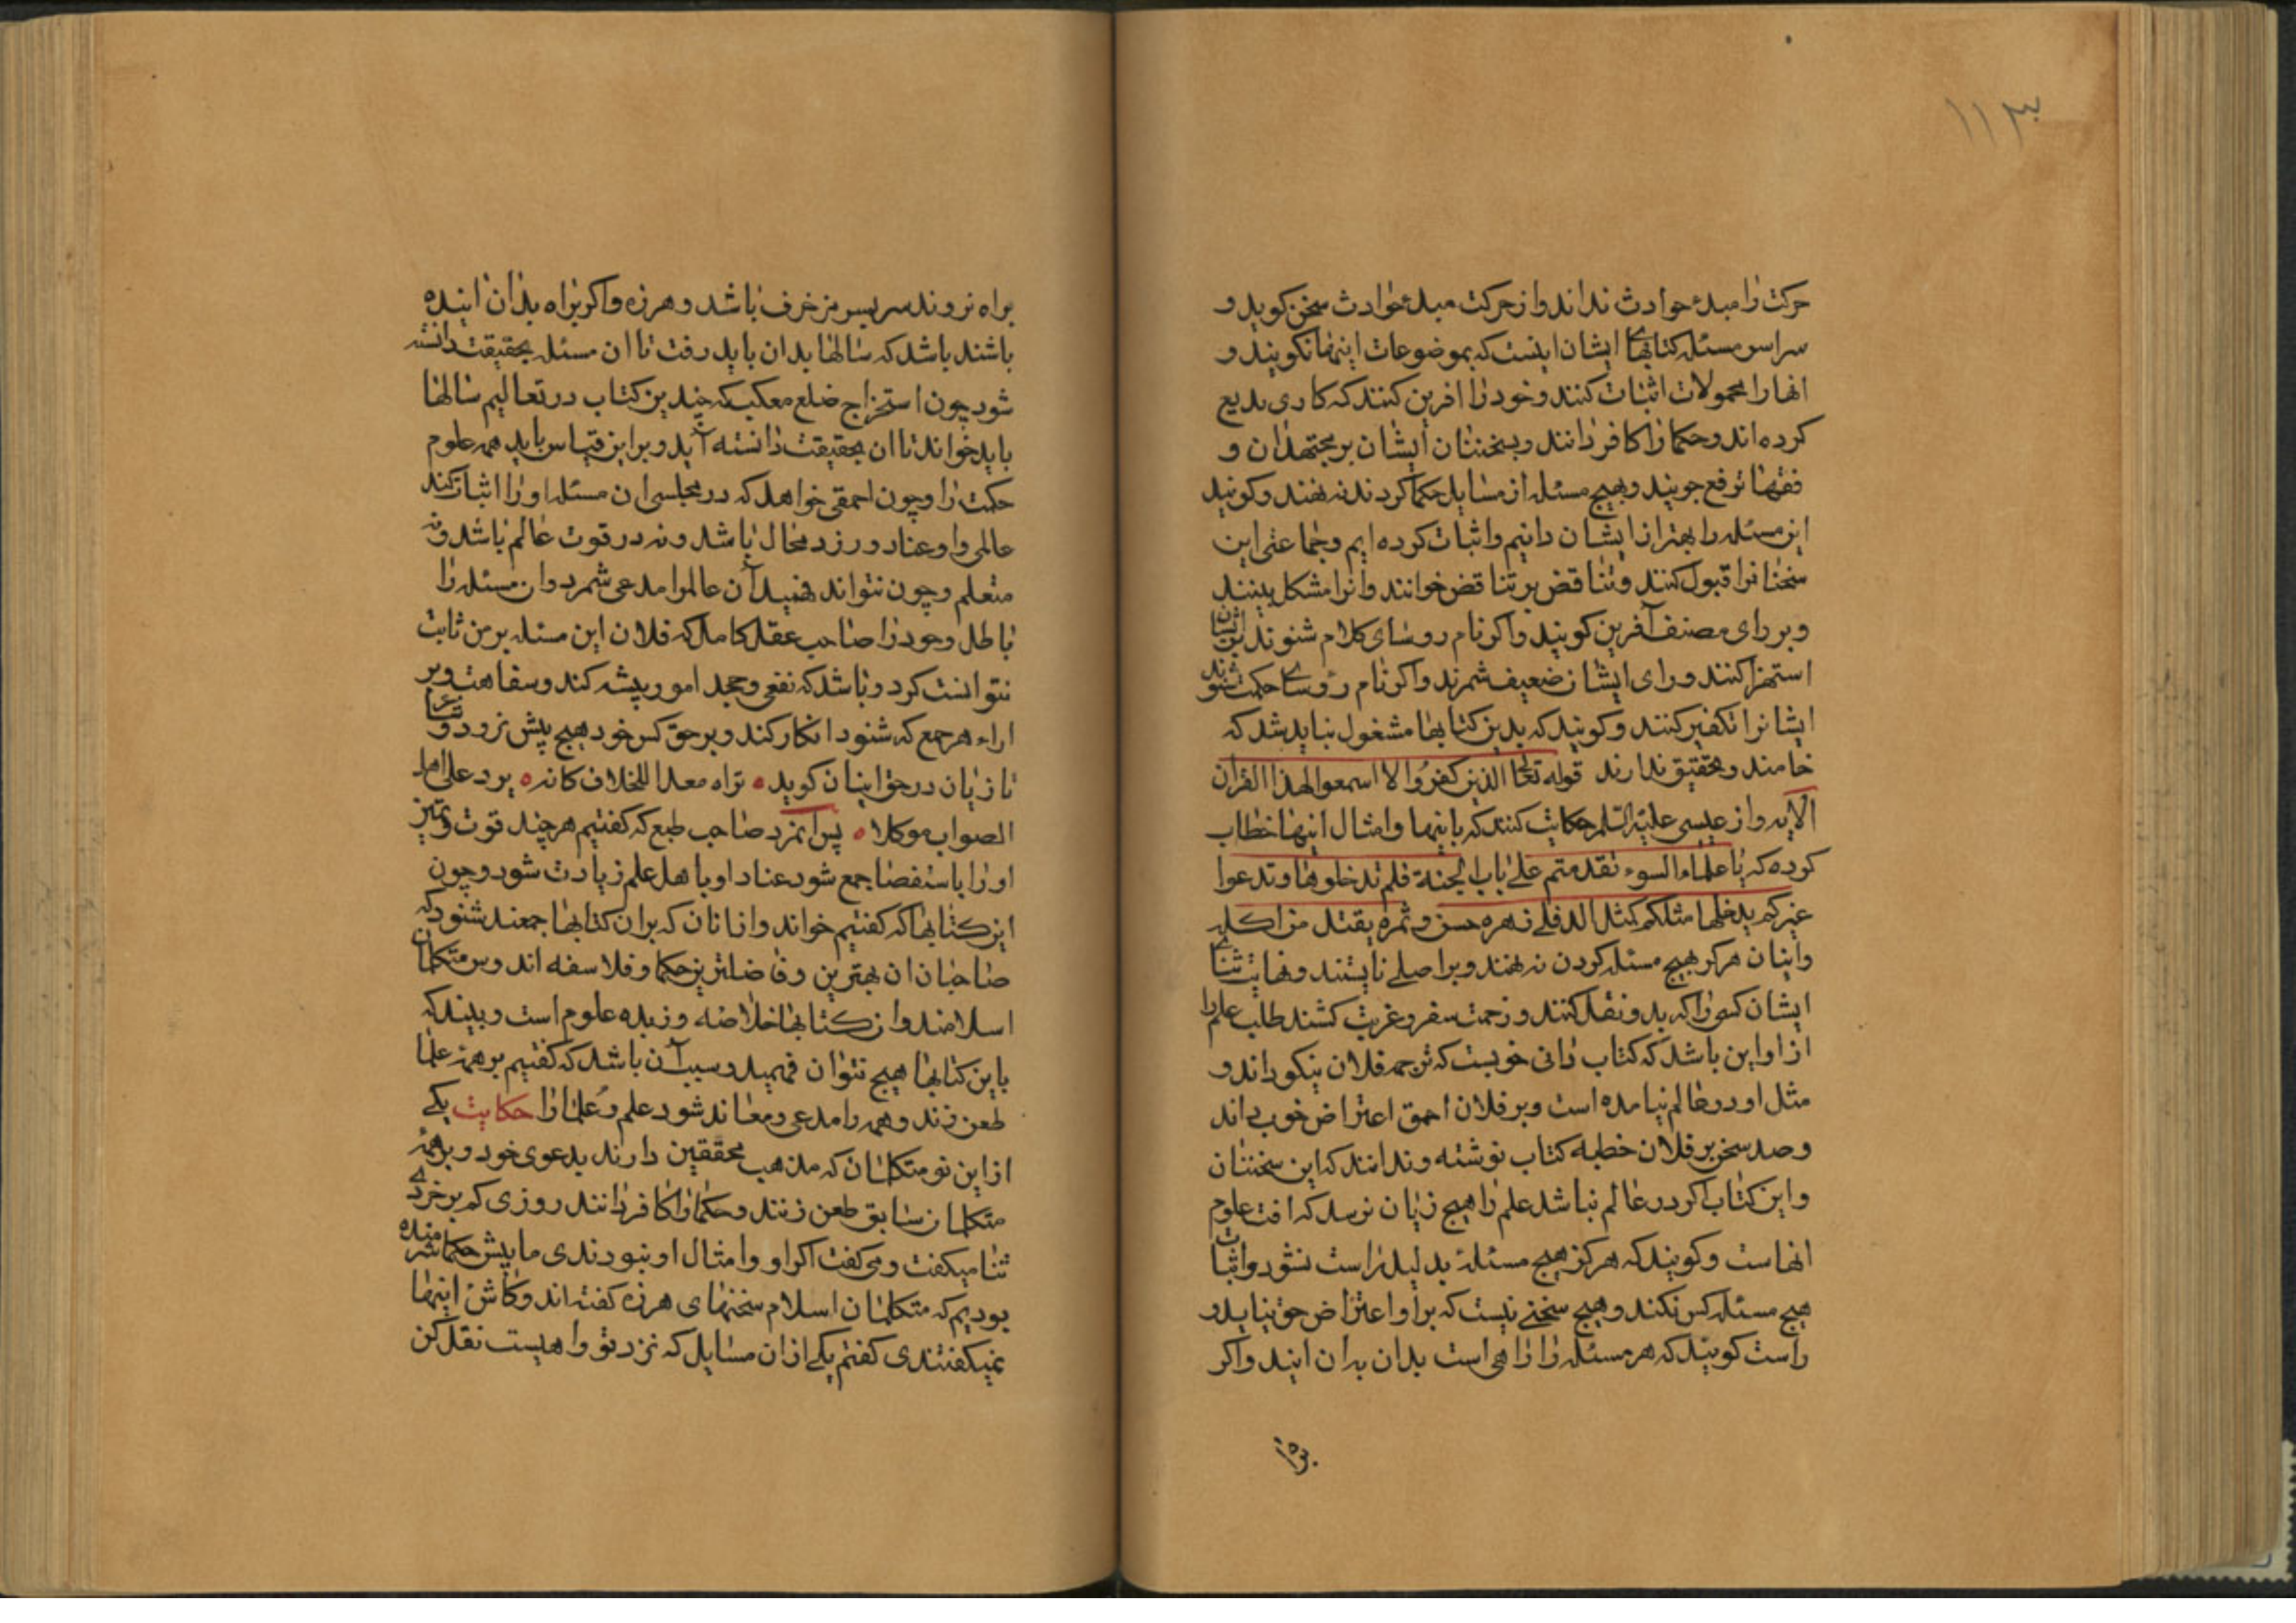 ۱۱۳
حرکت را مبدء حوادث نداند و از حرکت مبدء حوادث سخن کوید و
سراسر مسئله کتابهای ایشان اینست که بموضوعات اینها نکویند و
انها را بمحمولات اثبات کنند و خود را افرین کنند که کاری بدیع
کرده اند و حکما را کافر دانند و بسخنان ایشان بر مجتهدان و
فقها ترفع جویند و هیچ مسئله از مسایل حکما کردند نه فهمند و کویند
این مسئله را بهتر از ایشان دانیم و اثبات کرده ایم و جماعتی این
سخنانرا قبول کنند و تناقض بر تناقض خوانند و انرا مشکل بینند
و بر رای مصنف آفرین کویند و اکر نام روسای کلام شنوند بریشان
استهزا کنند و رای ایشان ضعیف شمرند و اکر نام رؤسای حکمت شنوند
ایشانرا تکفیر کنند و کویند که بدین کتابها مشغول نباید شد که
خامند و تحقیق ندارند قوله تعالی الذین کفروا لا اسمعوا لهذا القران
الایه و از عیسی علیه السلم حکایت کنند که باینها و امثال اینها خطاب
کرده که یا علماء السوء نقدمتم علی باب الجنة فلم تدخلوها و تدعوا
غیرکم یدخلها مثلکم کمثل الدفلی زهره حسن و ثمره یقتل من اکله
و اینان هرکز هیچ مسئله کردن نه فهمند و بر اصلی نایستند و نهایت ثنای
ایشان کسی را که بدو نقل کنند و زحمت سفر و غربت کشند طلب علم را
از او این باشد که کتاب دانی خوبست که ترجمه فلان نیکو داند و
مثل او در عالم نیامده است و بر فلان احمق اعتراض خوب داند
و صد سخن بر فلان خطبه کتاب نوشته و ندانند که این سخنان
و این کتاب اکر در عالم نباشد علم را هیچ زیان نرسد که افت علوم
انهاست و کویند که هرکز هیچ مسئله بدلیل راست نشود و اثبات
هیچ مسئله کس نکند و هیچ سخنی نیست که بر او اعتراض حق نیاید و
راست کویند که هر مسئله را راهی است بدان بدان ایند و اکر
براه
براه نروند سر بسر مزخرف باشد و هرزه و اکر براه بدان اینده
باشند باشد که سالها بدان باید رفت تا ان مسئله بحقیقت دانسته
شود چون استخراج ضلع معکب که چندین کتاب در تعالیم سالها
باید خواند تا ان بحقیقت دانسته آید و بر این قیاس باید همه علوم
حکمت را و چون احمقی خواهد که در مجلسی ان مسئله او را اثبات کند
عالمی و او عناد ورزد محال باشد و نه در قوت عالم باشد و نه
متعلم و چون نتواند فهمید آن عالم را مدعی شمرد و ان مسئله را
باطل و خود را صاحب عقل کامل که فلان این مسئله بر من ثابت
نتوانست کرد و باشد که نفعی و جحد امور پیشه کند و سفاهت و بر
اراء هر جمع که شنود انکار کند و بر حق کس خود هیچ پیش نرود و شاعر
تازیان در حق اینان کوید • تراه معدا للخلاف کانه • برد علی اهل
الصواب موکلا • پس انمزد صاحب طبع که کفتیم هر چند قوت و تمیز
او را باستقصا جمع شود عناد او با اهل علم زیادت شود و چون
این کتابها که کفتیم خواند و از انان که بران کتابها جمعند شنود که
صاحبان ان بهترین و فاضلترین حکما و فلاسفه اند و متکلمان
اسلامند و ان کتابها خلاصه و زبده علوم است و بیند که
باین کتابها هیچ نتوان فهمید و سبب آن باشد که کفتیم بر همه علما
طعن زند و همه را مدعی و معاند شود علم و علما را حکایت یکی
از این نو متکلمان که مذهب محققین دارند بدعوی خود و بر همه
متکلمان سابق طعن زنند و حکما را کافر دانند روزی کم برخردی
ثنا میکفت و می کفت اکر او و امثال او نبودندی ما پیش حکما شرمنده
بودیم که متکلمان اسلام سخنهای هرزه کفته اند و کاش اینها
نمیکفتندی کفتم یکی از ان مسایل که نزد تو واهیست نقل کن